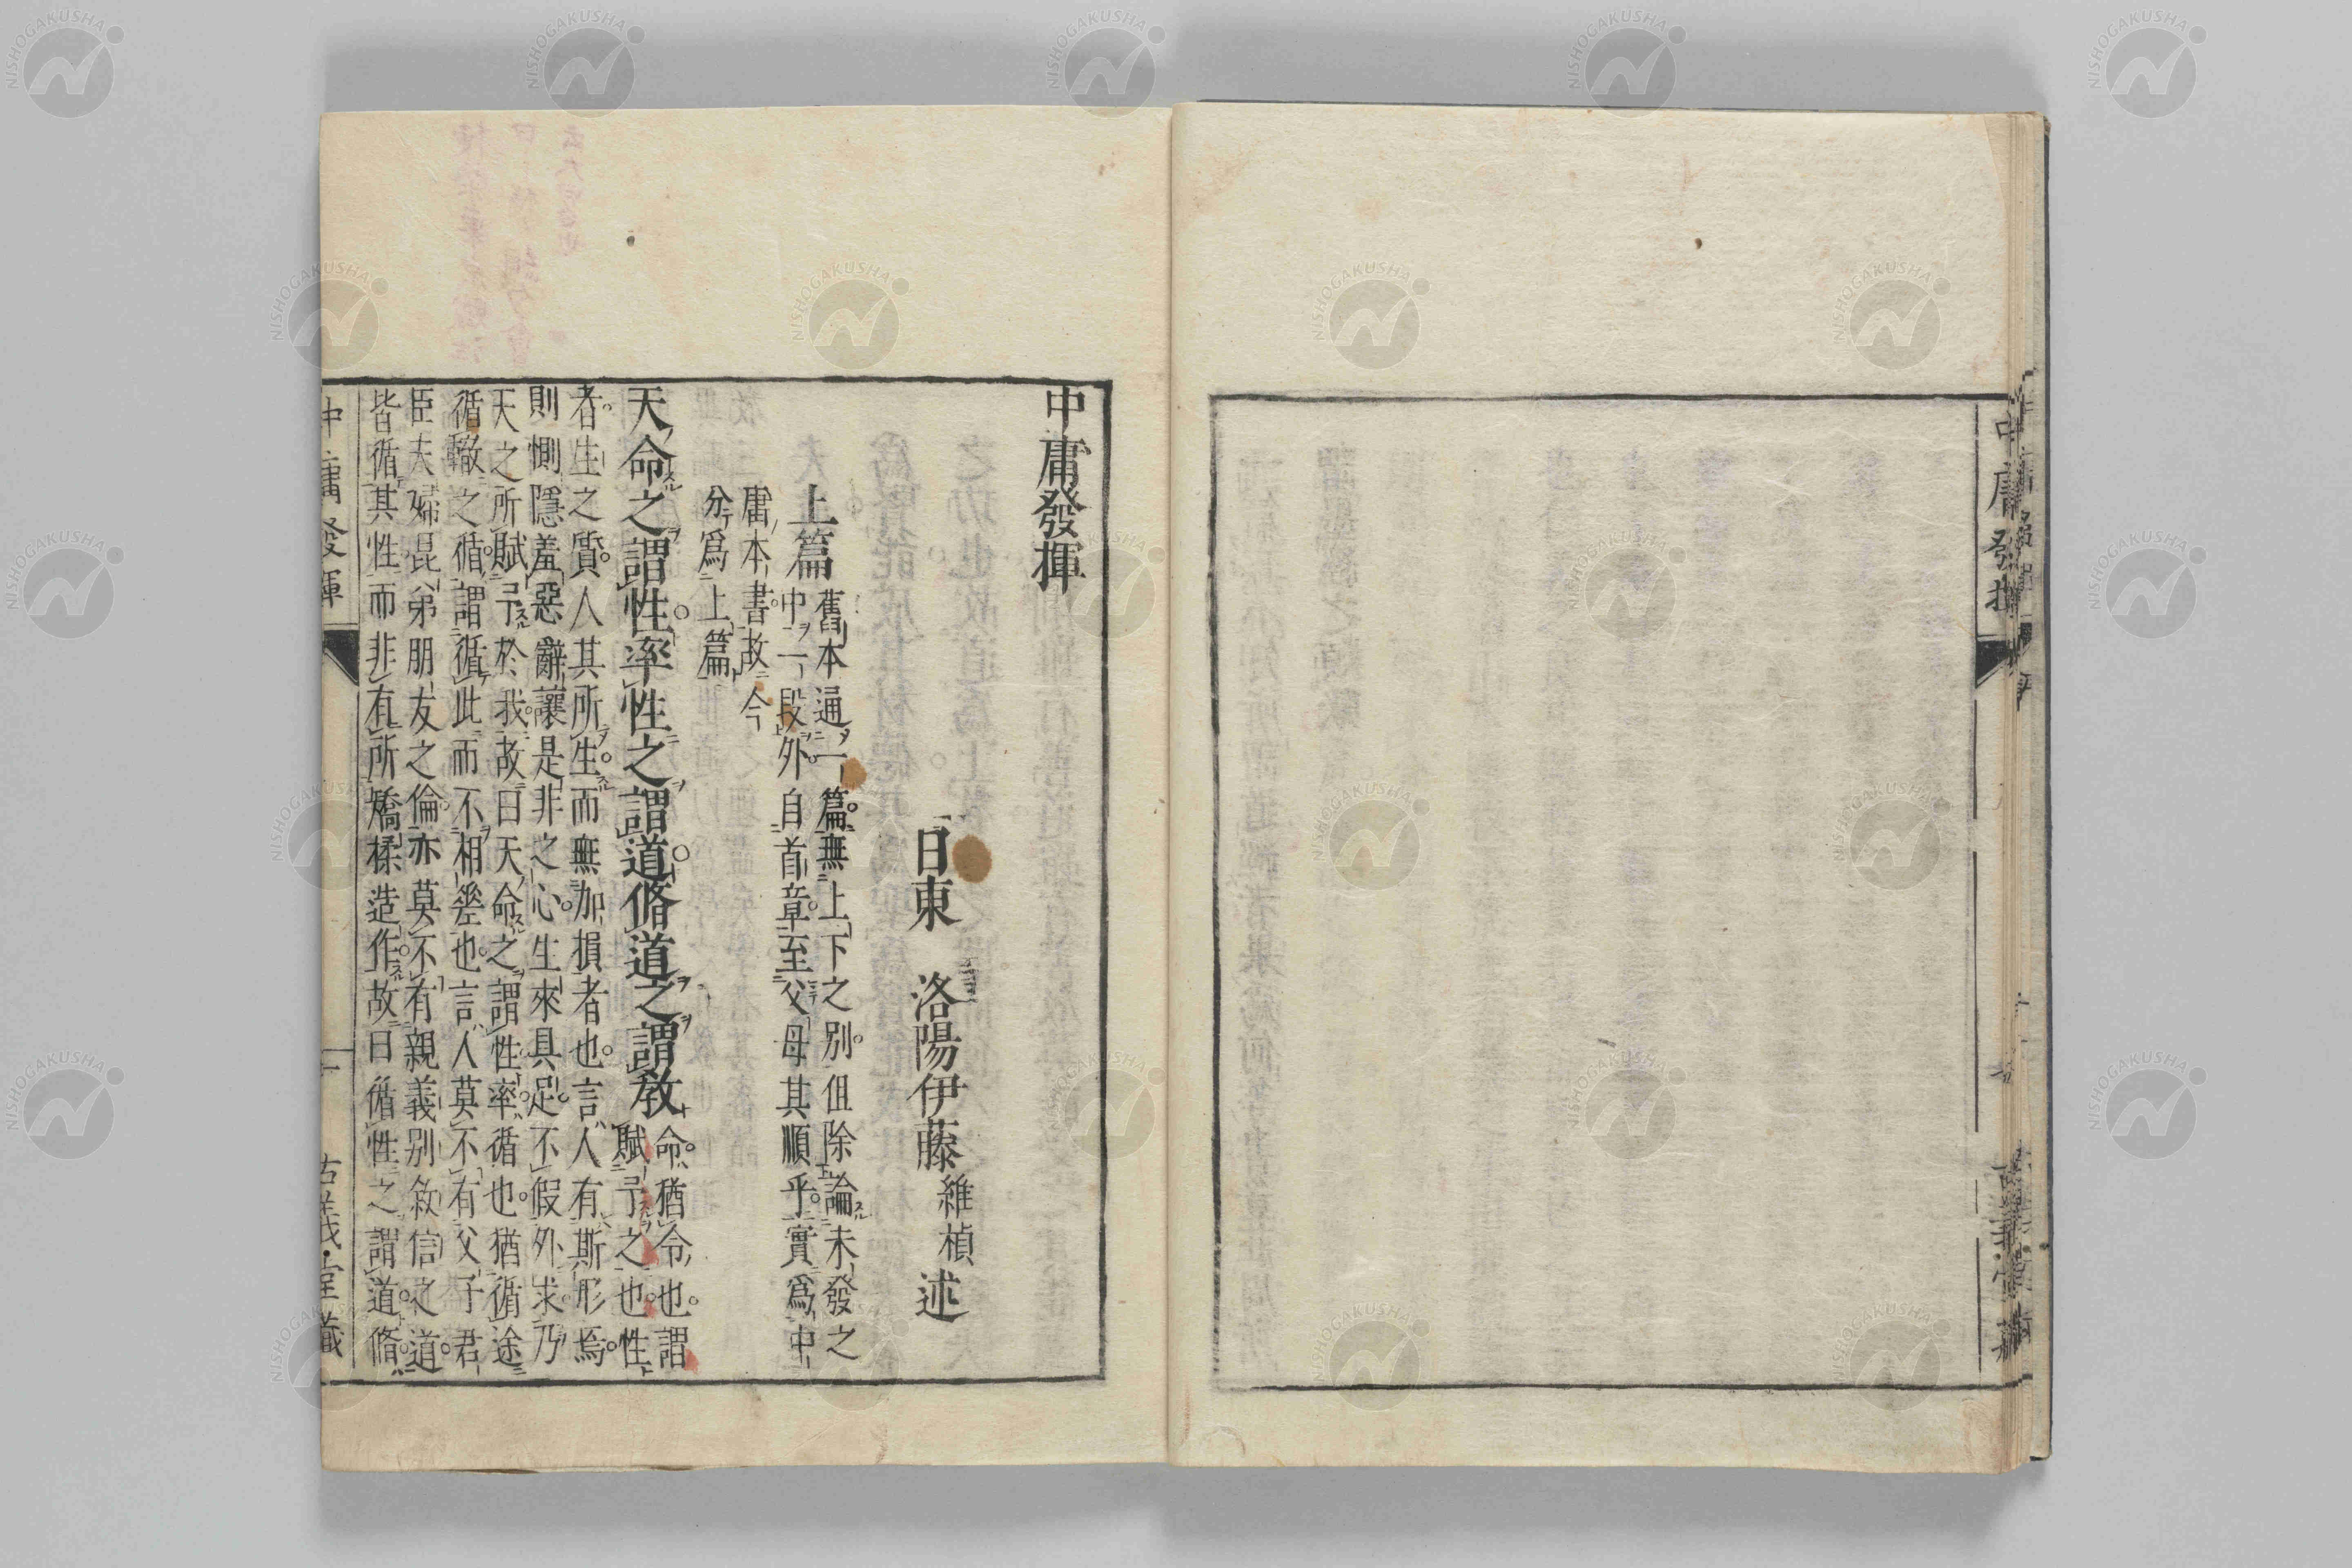 中庸發揮
日東 洛陽伊藤維楨述
上篇
舊本通一篇無上下之別但除論未發之
中一段外自首章至父母其順乎實爲中
庸本書故今
分爲上篇
天命之謂性率性之謂道脩道之謂敎
命猶令也謂
賦予之也性
者生之質人其所生而無加損者也言人有斯形焉
則惻隱羞惡辭讓是非之心生來具足不假外求乃
天之所賦予於我故曰天命之謂性率循也猶循途
循轍之循謂循此而不相差也言人莫不有父子君
臣夫婦昆弟朋友之倫亦莫不有親義別敘信之道
皆循其性而非有所矯揉造作故曰循性之謂道脩
中庸發揮
古義堂藏
中庸發揮
古義堂藏
NISHOGAKUSHA